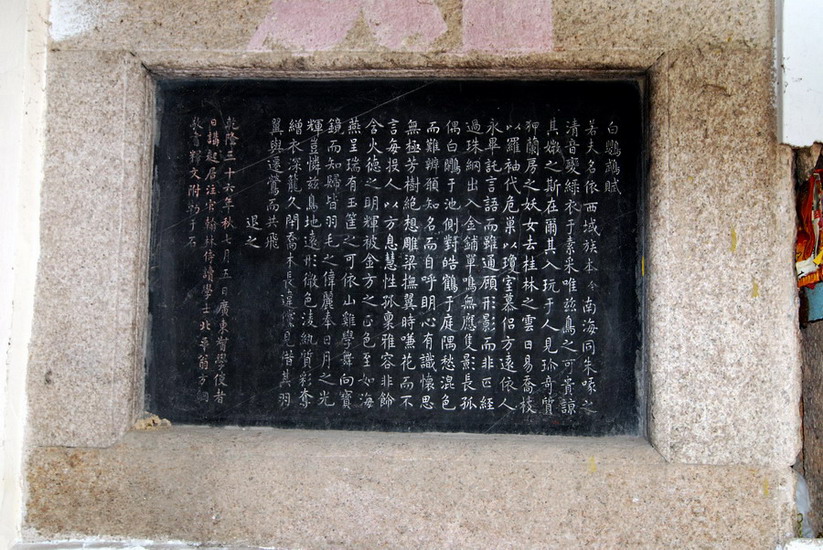 白鸚鵡賦
若夫名依西域族本今南海同朱喙之
清音變綠衣于素采唯兹鳥之可貴諒
其媺之斯在爾其入玩于人見珍奇質
狎蘭房之妖女去桂林之雲日易喬枝
以羅袖代危巢以瓊室慕侶方遠依人
永畢託言語而雖通顧形影而非匹經
過珠網出入金鋪單鳴無應隻影長孤
偶白鷴于池側對皓鶴于庭隅愁混色
而難辨願知名而自呼明心有識懷思
無極芳樹絕想雕梁撫翼時嗛花而不
言每投人以方息慧性孤稟雅容非飾
含火德之明輝被金方之正色至如海
燕呈瑞有玉筐之可依山雞學舞向寶
鏡而知歸皆羽毛之偉麗奉日月之光
輝豈憐兹鳥地遠形微色淩紈質彩奪
繒衣深籠久閉喬木長違儻見借其羽
翼與遷鶯而共飛
退之
乾隆三十六年秋七月五日廣東督學使者
日講起居注官翰林侍讀學士北平翁方綱
敬書釋文附勒于石